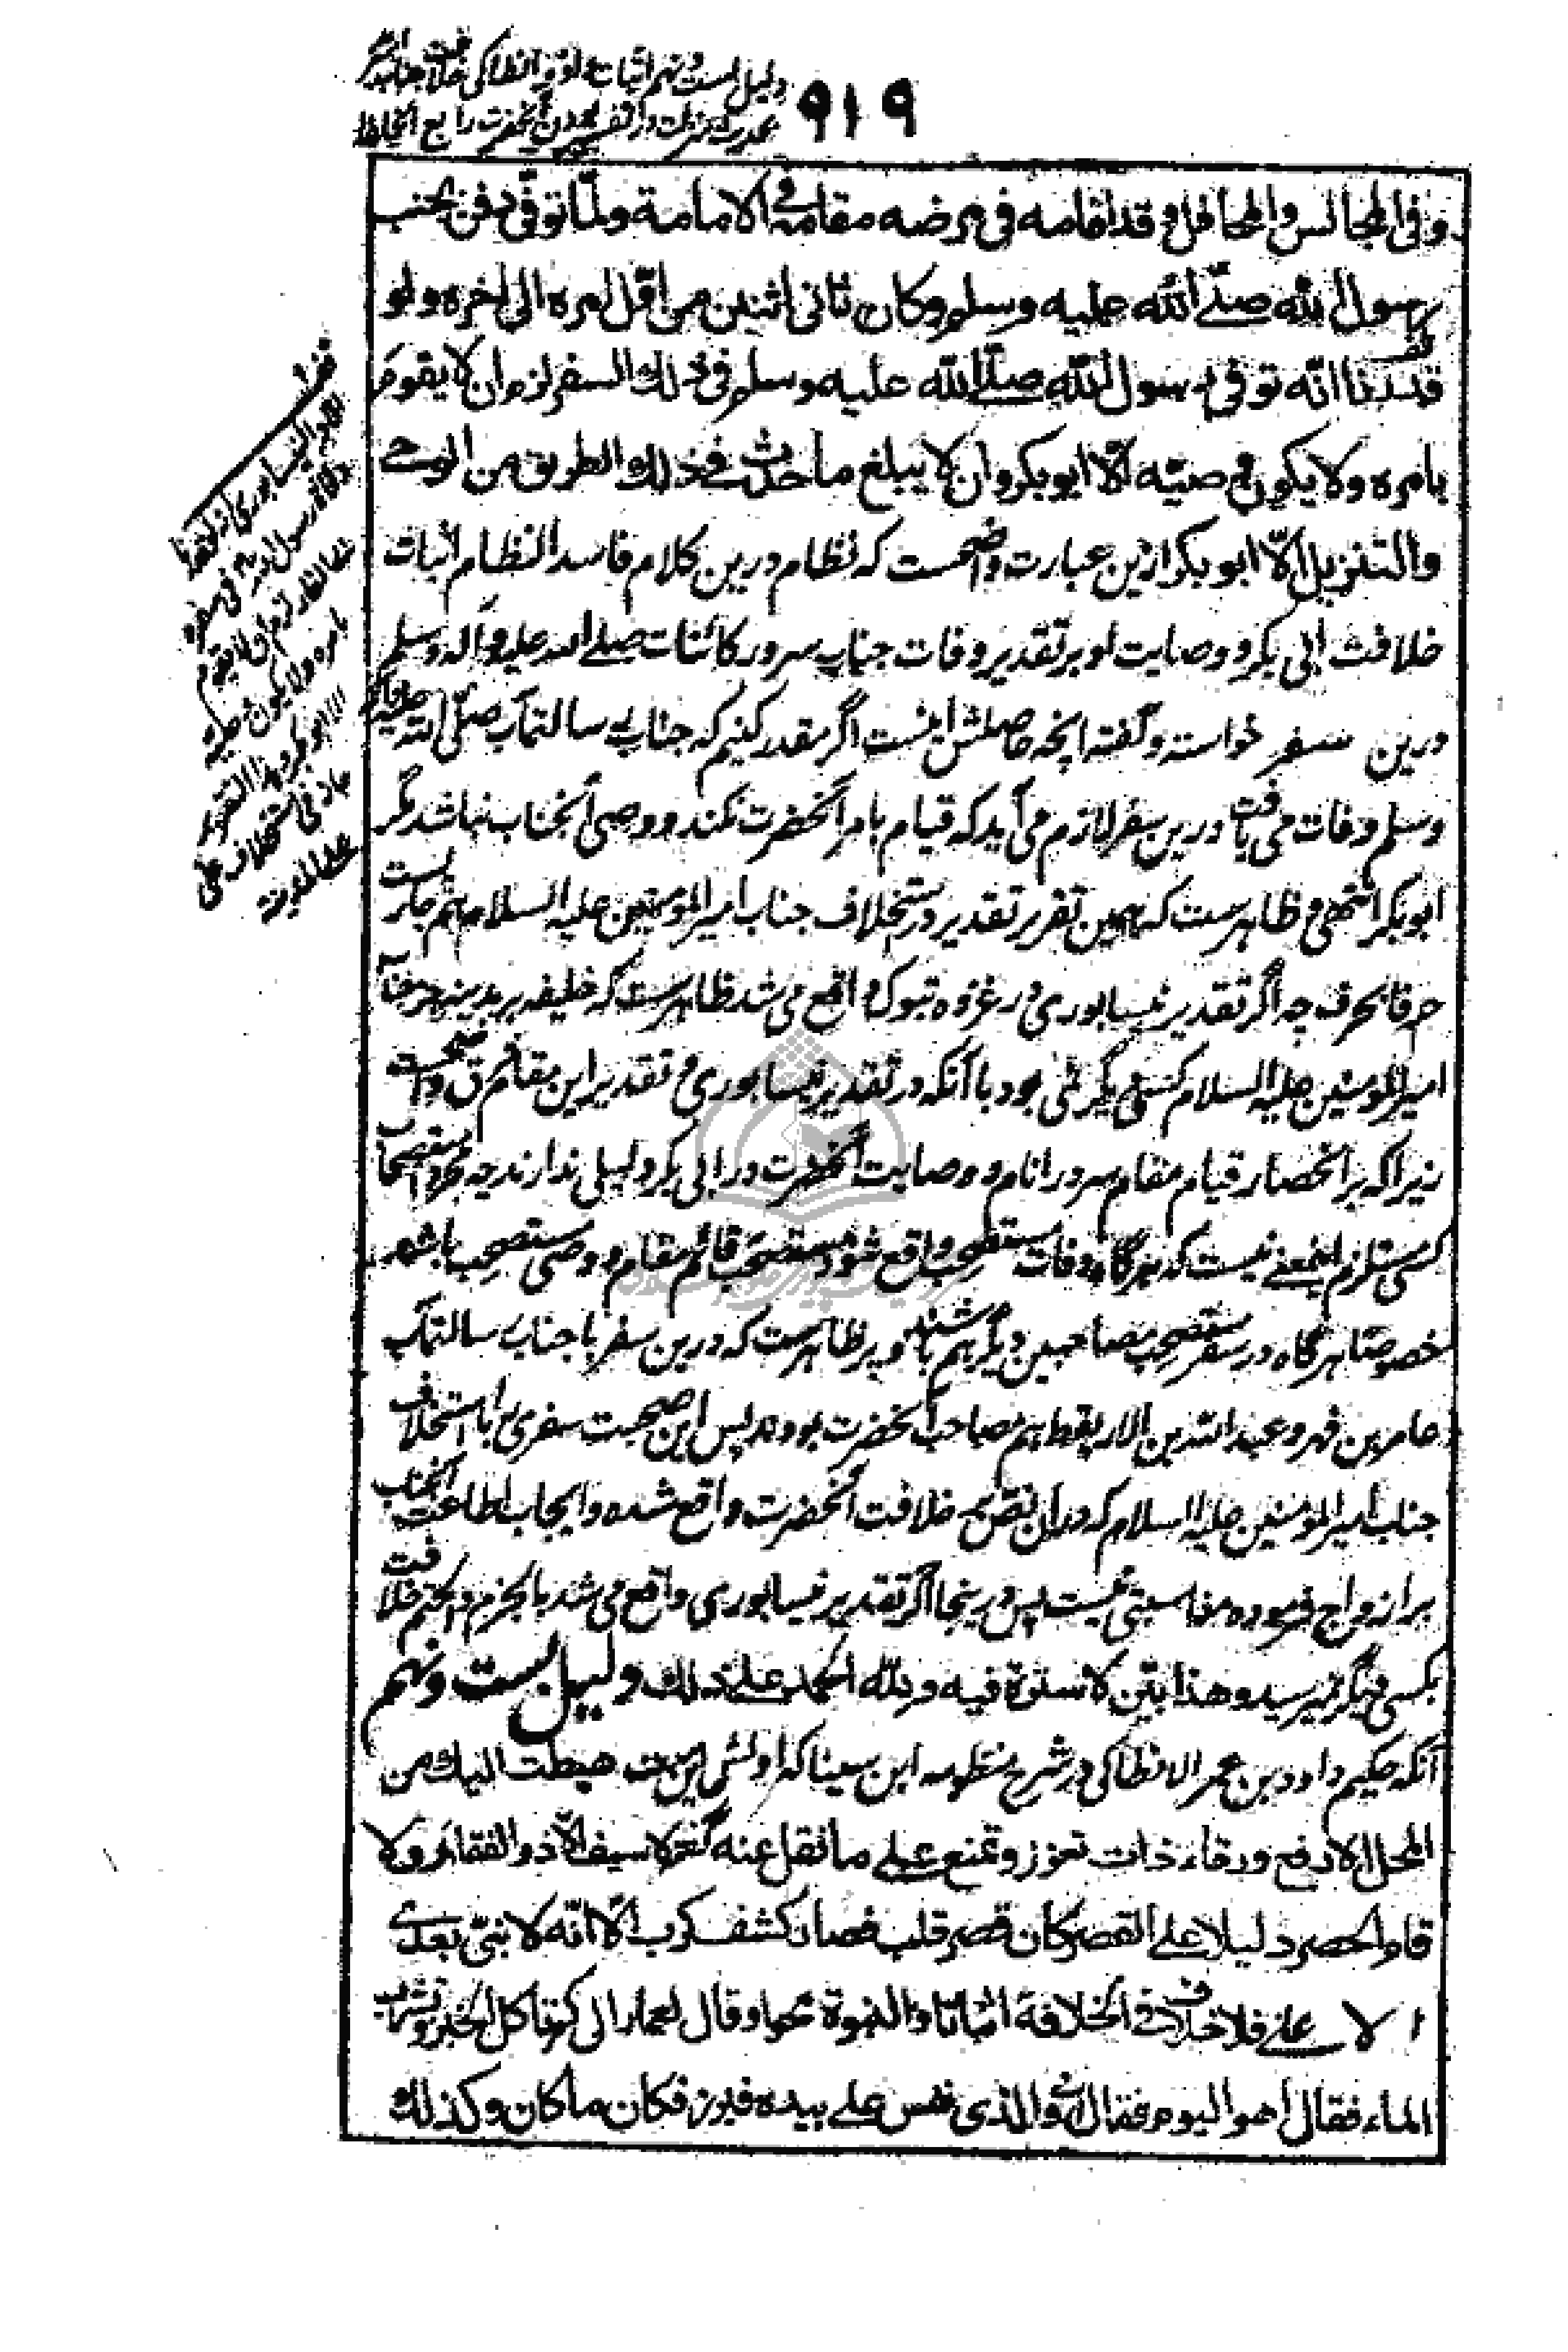 دلیل بست و نهم اثبات داود انطاکی خلافت جناب امیر
بحدیث منزلت و از نفس بودن آنحضرت رابع الخلفا
۹۱۹
وفی المجالس والمحافل وقد اقامه فی مرضه مقامه فی الامامة ولمّا توفّی دفن بجنب
رسول الله صلّی الله علیه وسلم وکان ثانی اثنین من اوّل امره الی اخره ولو
قدرنا انّه توفی رسول الله صلّی الله علیه وسلم فی ذلك السفر لزم ان لا یقوم
بامره ولا یکون وصیّه الّا ابو بکر وان لا یبلغ ما حدث فی ذلك الطریق من الوحے
والتنزیل الّا ابو بکر ازین عبارت واضحست که نظام درین کلام فاسد النظام اثبات
خلافت ابی بکر و وصایت او بر تقدیر وفات جناب سرور کائنات صلے الله علیه وآله وسلم
درین سفر خواسته وگفته آنچه حاصلش اینست اگر مقدر کنیم که جناب رسالتمآب صلّی الله علیه وآله
وسلم وفات می یافت درین سفر لازم می آید که قیام بامر آنحضرت نکند و وصی آنجناب نباشد مگر
ابو بکر انتهی و ظاهرست که همین تقریر تقدیر در استخلاف جناب امیر المؤمنین علیه السلام هم جاریست
حرفا بحرف چه اگر تقدیر نیسابوری در غزوه تبوک واقع می شد ظاهرست که خلیفه بر مدینه جز جناب
امیر المؤمنین علیه السلام کسی دیگر نمی بود با آنکه در تقدیر نیسابوری و تقدیر این مقام فرق واضحست
زیرا که بر انحصار قیام مقام سرور انام و وصایت آنحضرت در ابی بکر دلیلی ندارند چه مجرد استصحاب
کسی مستلزم اینمعنے نیست که هرگاه وفات مستصحِب واقع شود مستصحَب قائم مقام و وصی مستصحِب باشد
خصوصًا هرگاه در سفر مستصحِب مصاحبین دیگر هم باشند و پر ظاهرست که درین سفر با جناب رسالتمآب
عامر بن فهره و عبد الله بن الاریقط هم مصاحب آنحضرت بودند پس این صحبت سفری را با استخلاف
جناب امیر المؤمنین علیه السلام که در ان نص صریح خلافت آنحضرت واقع شده و ایجاب اطاعت آنجناب
بر ازواج فرموده مناسبتی نیست پس در ینجا اگر تقدیر نیسابوری واقع می شد بالجزم والحتم خلافت
بکسی دیگر نمیرسید وهذا بیّن لا سترة فیه ولله الحمد علے ذلك دلیل بست و نهم
آنکه حکیم داود بن عمر الانطاکی در شرح منظومه ابن سینا که اولش اینست هبطت الیك من
المحل الارفع ورقاء ذات تعزز وتمنع علے ما نقل عنه گفته لا سیف الّا ذو الفقار ولا
قام الحصر دلیلا علے القصر کان قصر قلب فصار کشف کرب الّا انّه لا نبیّ بعدی
الا علے فلا خلاف فی الخلافة اثباتا والنبوة محوا وقال لعمار الی کم تاکل الخبز وتشرب
الماء فقال اهو الیوم فقال ای والذی نفس علے بیده فبرز فکان ما کان وکذلك